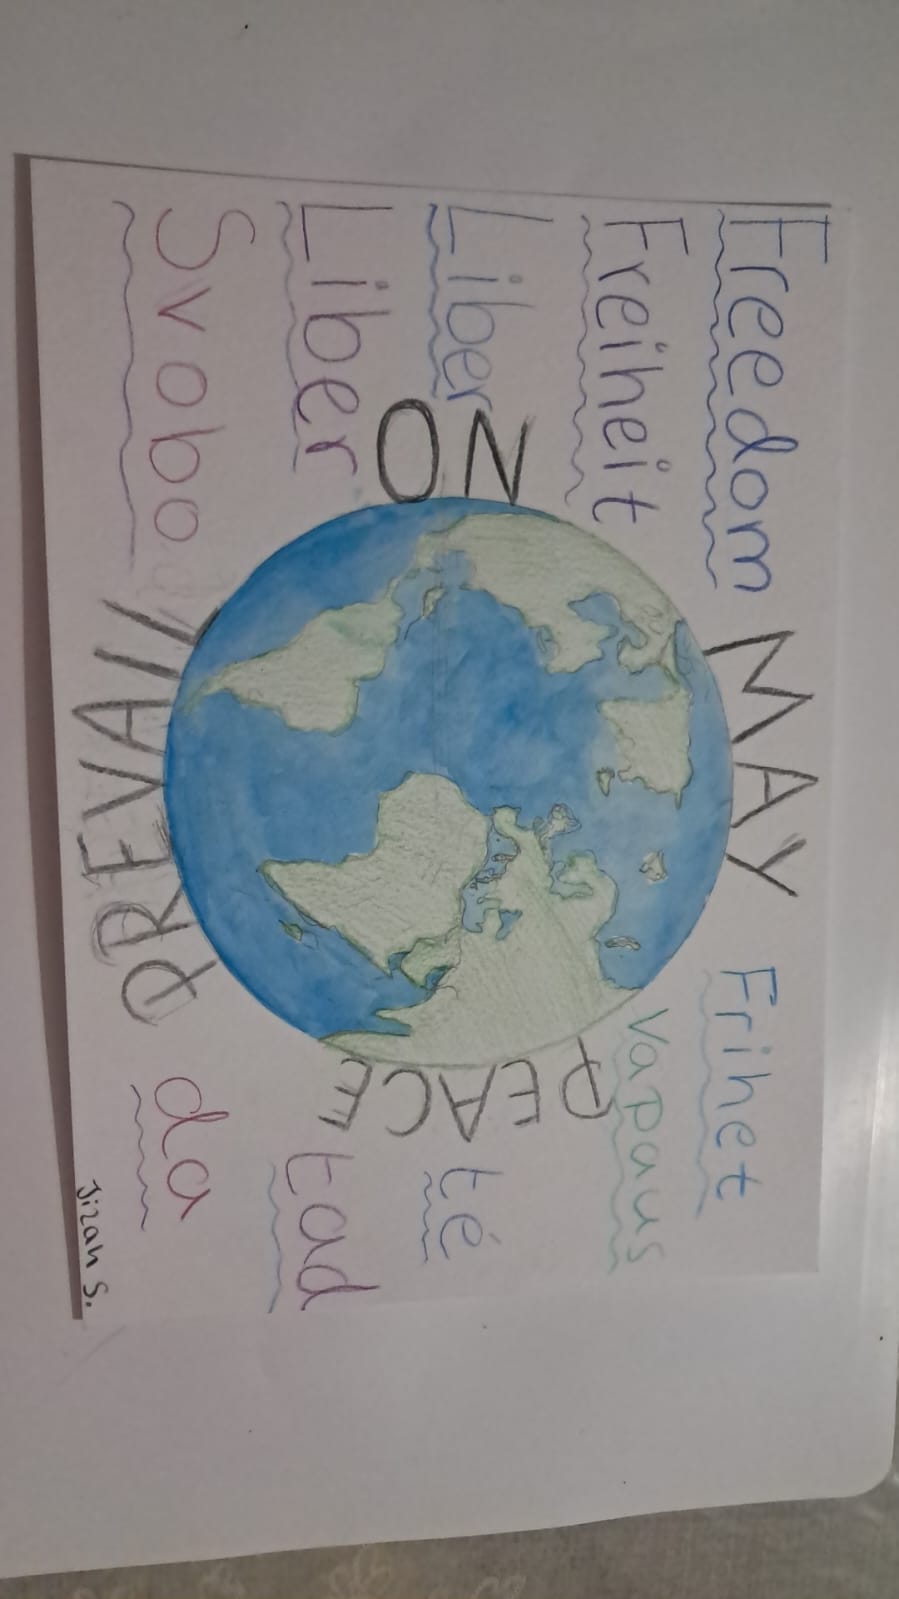 Freedom
Frihet
Freiheit
Vapaus
Liber té
Liber tad
Svobo da
MAY
PEACE
PREVAIL
ON